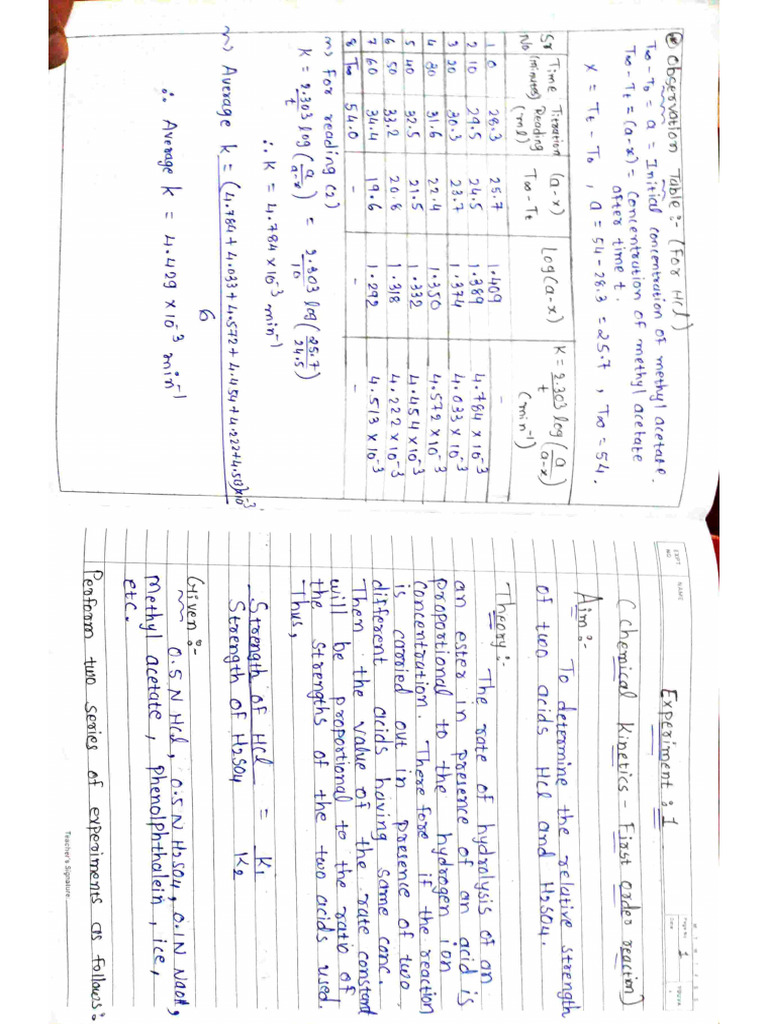 ⊛ Observation Table :- (For HCl)
T∞ - T₀ = a = Initial concentration of methyl acetate.
T∞ - Tt = (a-x) = concentration of methyl acetate
after time t.
x = Tt - T₀ , a = 54 - 28.3 = 25.7 , T∞ = 54.
Sr No | Time (minutes) | Titration Reading (ml) | (a-x) T∞ - Tt | log(a-x) | K = 2.303/t log(a/a-x) (min⁻¹)
1 | 0 | 28.3 | 25.7 | 1.409 | -
2 | 10 | 29.5 | 24.5 | 1.389 | 4.784 × 10⁻³
3 | 20 | 30.3 | 23.7 | 1.374 | 4.033 × 10⁻³
4 | 30 | 31.6 | 22.4 | 1.350 | 4.572 × 10⁻³
5 | 40 | 32.5 | 21.5 | 1.332 | 4.454 × 10⁻³
6 | 50 | 33.2 | 20.8 | 1.318 | 4.222 × 10⁻³
7 | 60 | 34.4 | 19.6 | 1.292 | 4.513 × 10⁻³
8 | T∞ | 54.0 | - | - | -
For reading (2)
K = 2.303/t log(a/a-x) = 2.303/10 log(25.7/24.5)
∴ K = 4.784 × 10⁻³ min⁻¹
Average K = (4.784 + 4.033 + 4.572 + 4.454 + 4.222 + 4.513) × 10⁻³ / 6
∴ Average K = 4.429 × 10⁻³ min⁻¹
EXPT. NO.
NAME
Page No. 1
Date
Experiment : 1
(Chemical Kinetics - First order reaction)
Aim :-
To determine the relative strength
of two acids HCl and H2SO4.
Theory :-
The rate of hydrolysis of an
an ester in presence of an acid is
proportional to the hydrogen ion
concentration. Therefore if the reaction
is carried out in presence of two
different acids having same conc.
Then the value of the rate constant
will be proportional to the ratio of
the strengths of the two acids used.
Thus,
Strength of HCl / Strength of H2SO4 = K1 / K2
Given :-
0.5 N HCl, 0.5 N H2SO4, 0.1 N NaOH,
Methyl acetate, phenolphthalein, ice,
etc.
Perform two series of experiments as follows:
Teacher's Signature